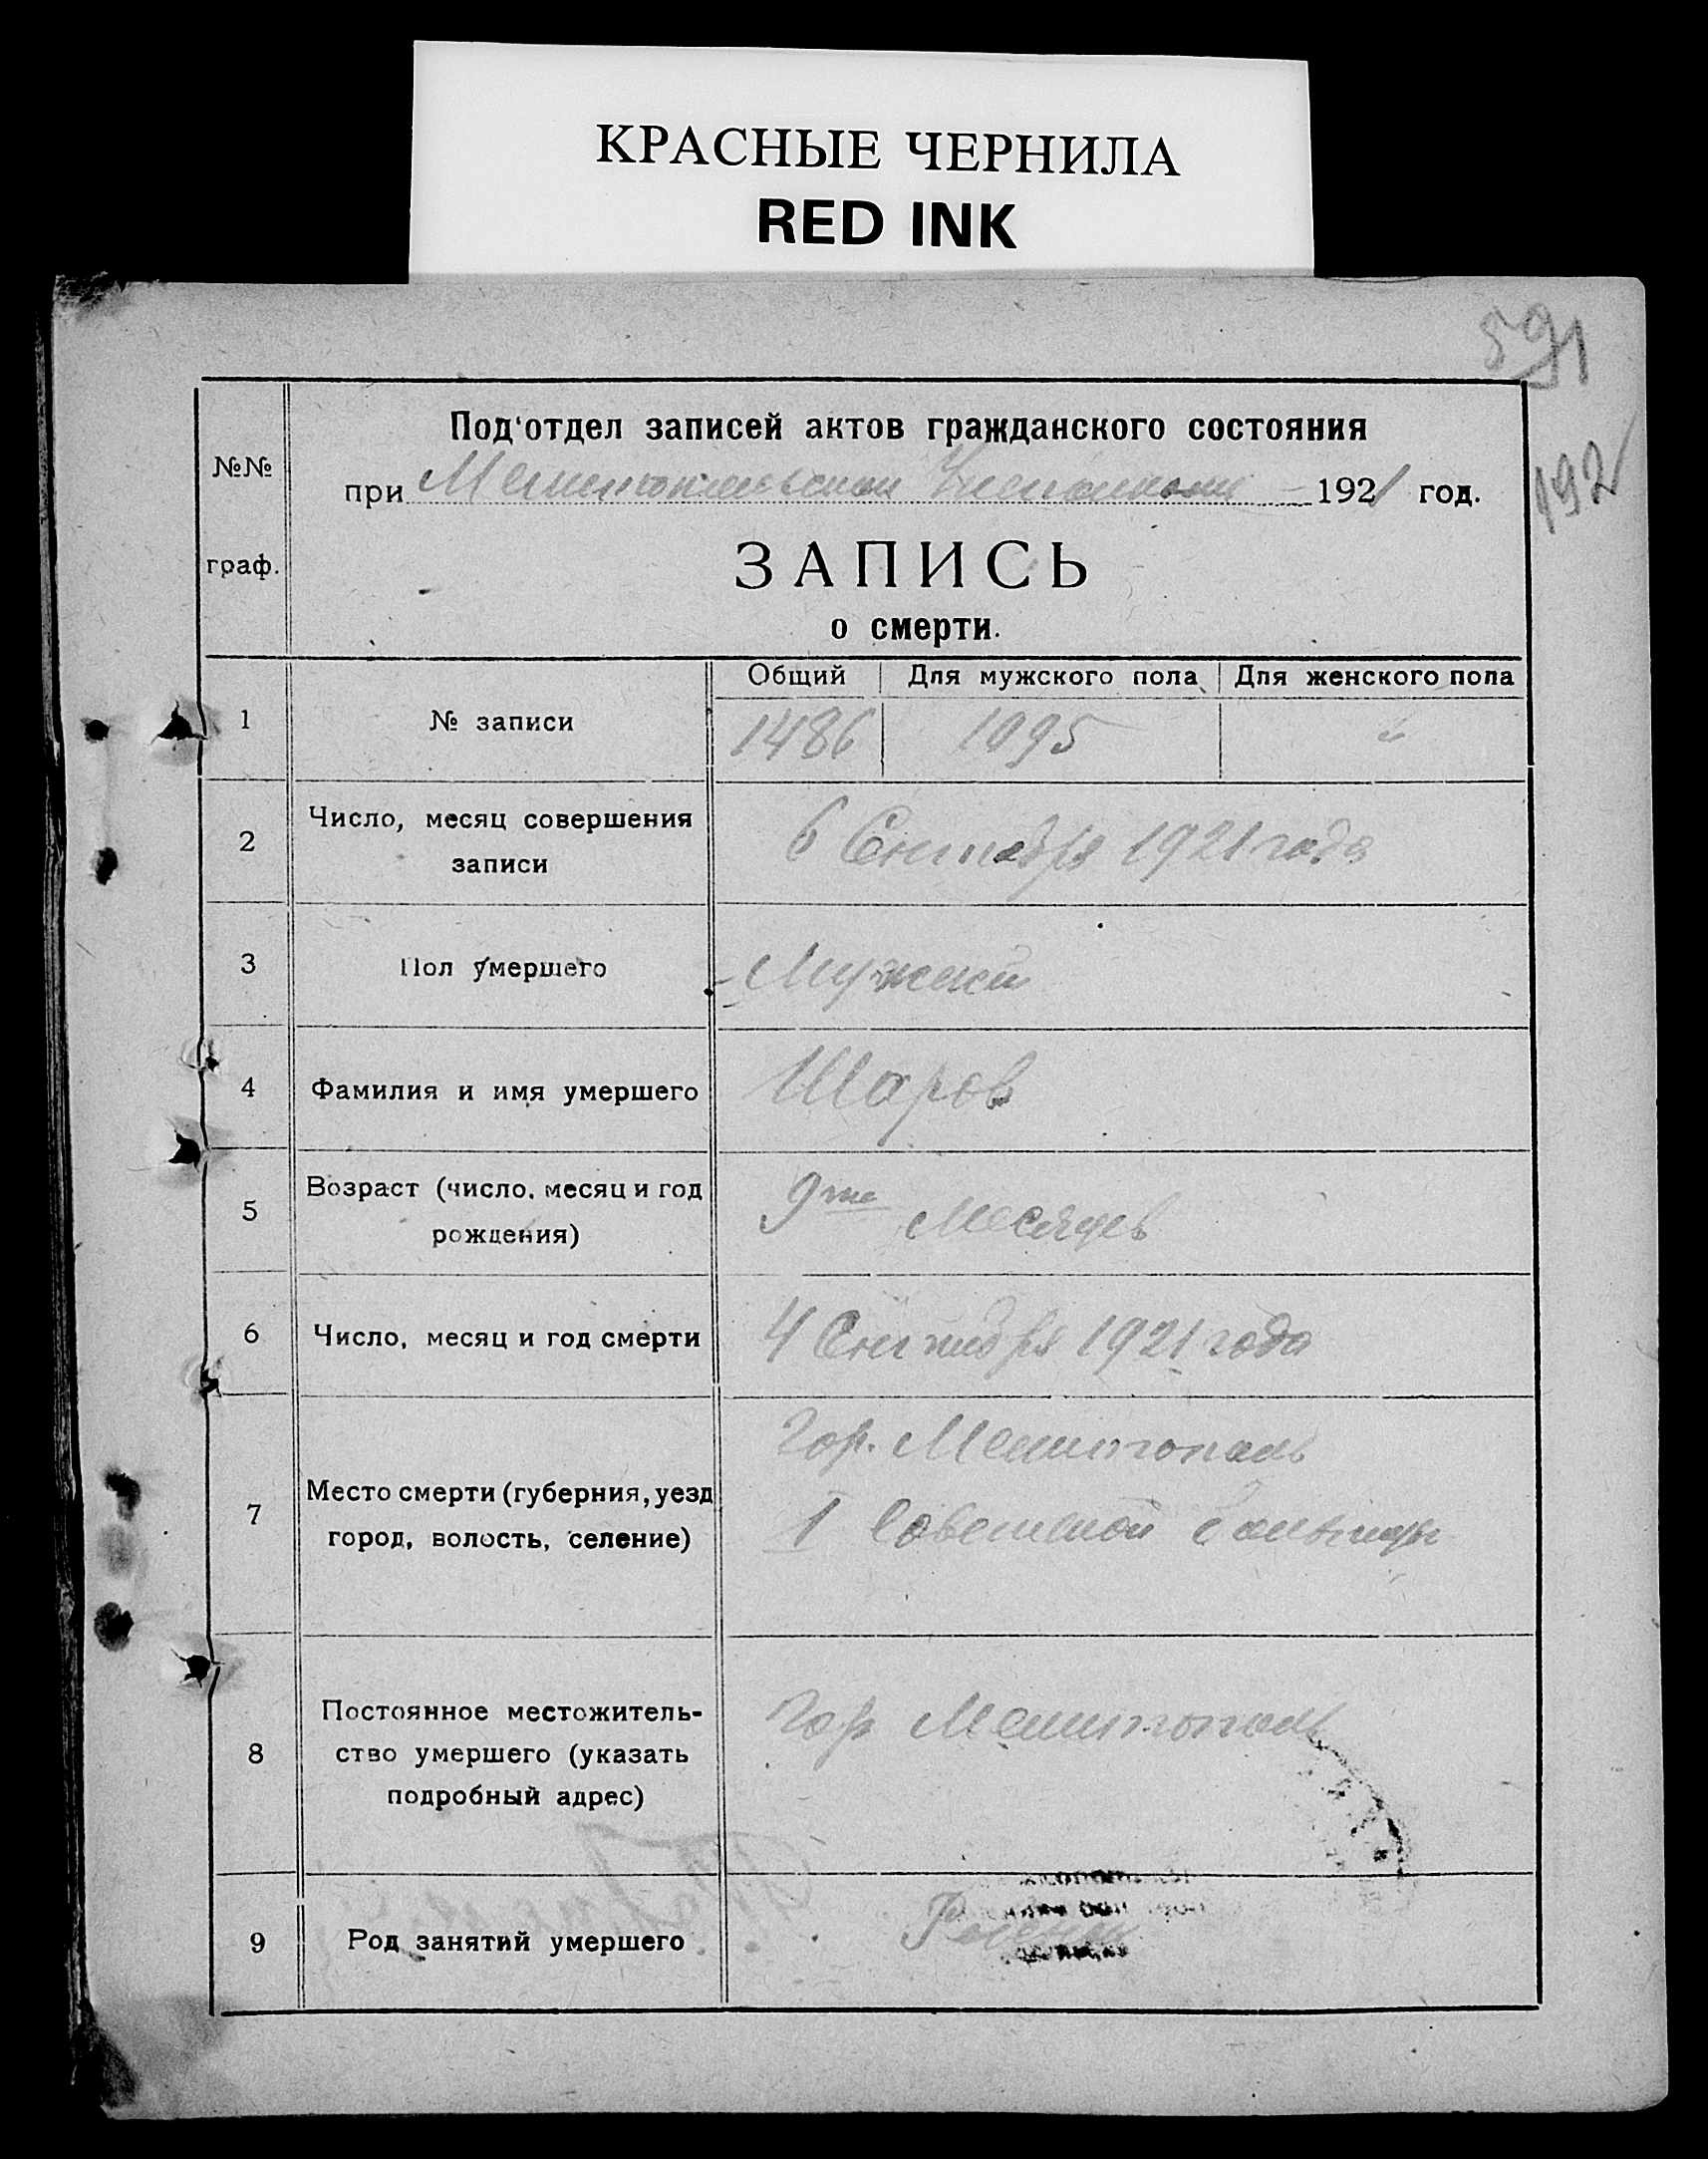 КРАСНЫЕ ЧЕРНИЛА
RED INK
591
192
№№ граф.
Под'отдел записей актов гражданского состояния
при Мелитопольском 1921 год.
ЗАПИСЬ
о смерти.
Общий Для мужского пола Для женского пола
1 № записи 1486 1095 "
2 Число, месяц совершения
записи
6 Сентября 1921 года
3 Пол умершего Мужской
4 Фамилия и имя умершего Шаров
5 Возраст (число, месяц и год
рождения)
9ти Месяцев
6 Число, месяц и год смерти 4 Сентября 1921 года
7 Место смерти (губерния, уезд
город, волость, селение)
Гор. Мелитополь
1 Советской больницы
8 Постоянное местожитель-
ство умершего (указать
подробный адрес)
Гор Мелитополь
9 Род занятий умершего